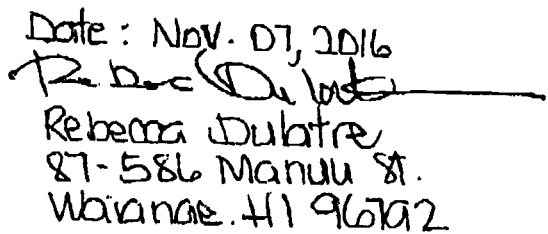 Date: Nov. 07, 2016
Rebecca Dulatre
87-586 Manuu St.
Waianae. HI 96792